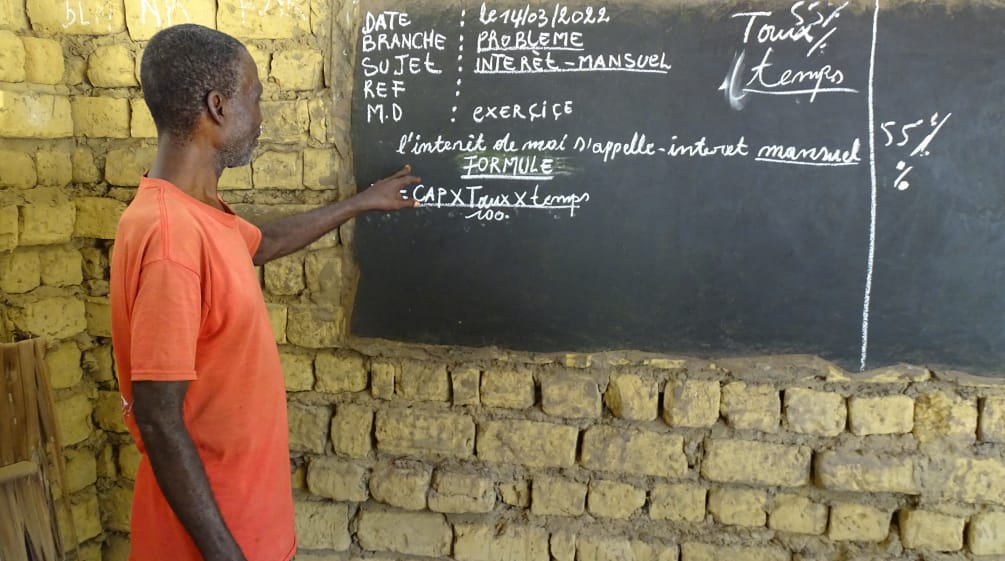 DATE : le 14/03/2022
BRANCHE : PROBLEME
SUJET : INTERÈT-MANSUEL
REF :
M.D : EXERÇIÇE
l'interêt de mai s'appelle-interet mansuel
FORMULE
=CAPXTauxXtemps
100.
55%
Taux%
temps
55%
%